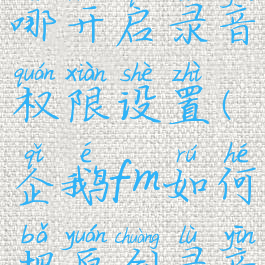 哪开启录音
quán xiàn shè zhì
权限设置(
qǐ é rú hé
企鹅fm如何
bǎ yuán chuàng lù yīn
把原创录音